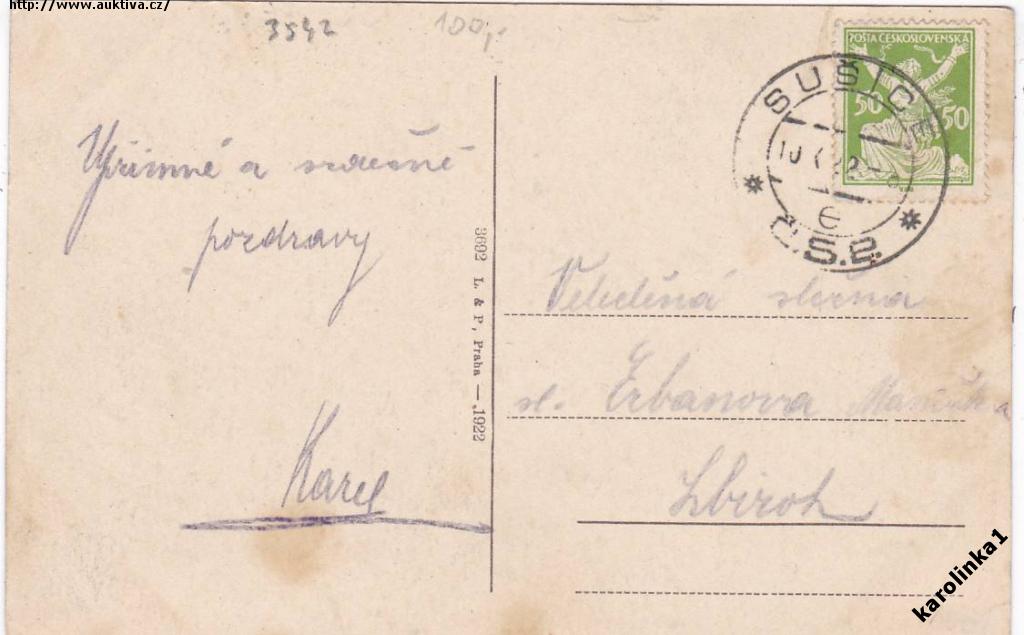 http://www.auktiva.cz/
3542
100,-
Upřímné a srdečné
pozdravy
Karel
3692 L. & P., Praha — 1922
POŠTA ČESKOSLOVENSKÁ
50 50
SUŠICE
10 X
E
Č.S.P.
Veleděná slečna
sl. Erbanova
Zbiroh
karolinka1